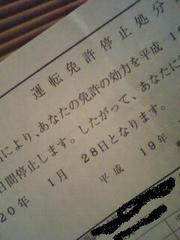 運転免許停止処分
により、あなたの免許の効力を平成1
日間停止します。したがって、あなたに
20年 1月 28日となります。
平成 19年